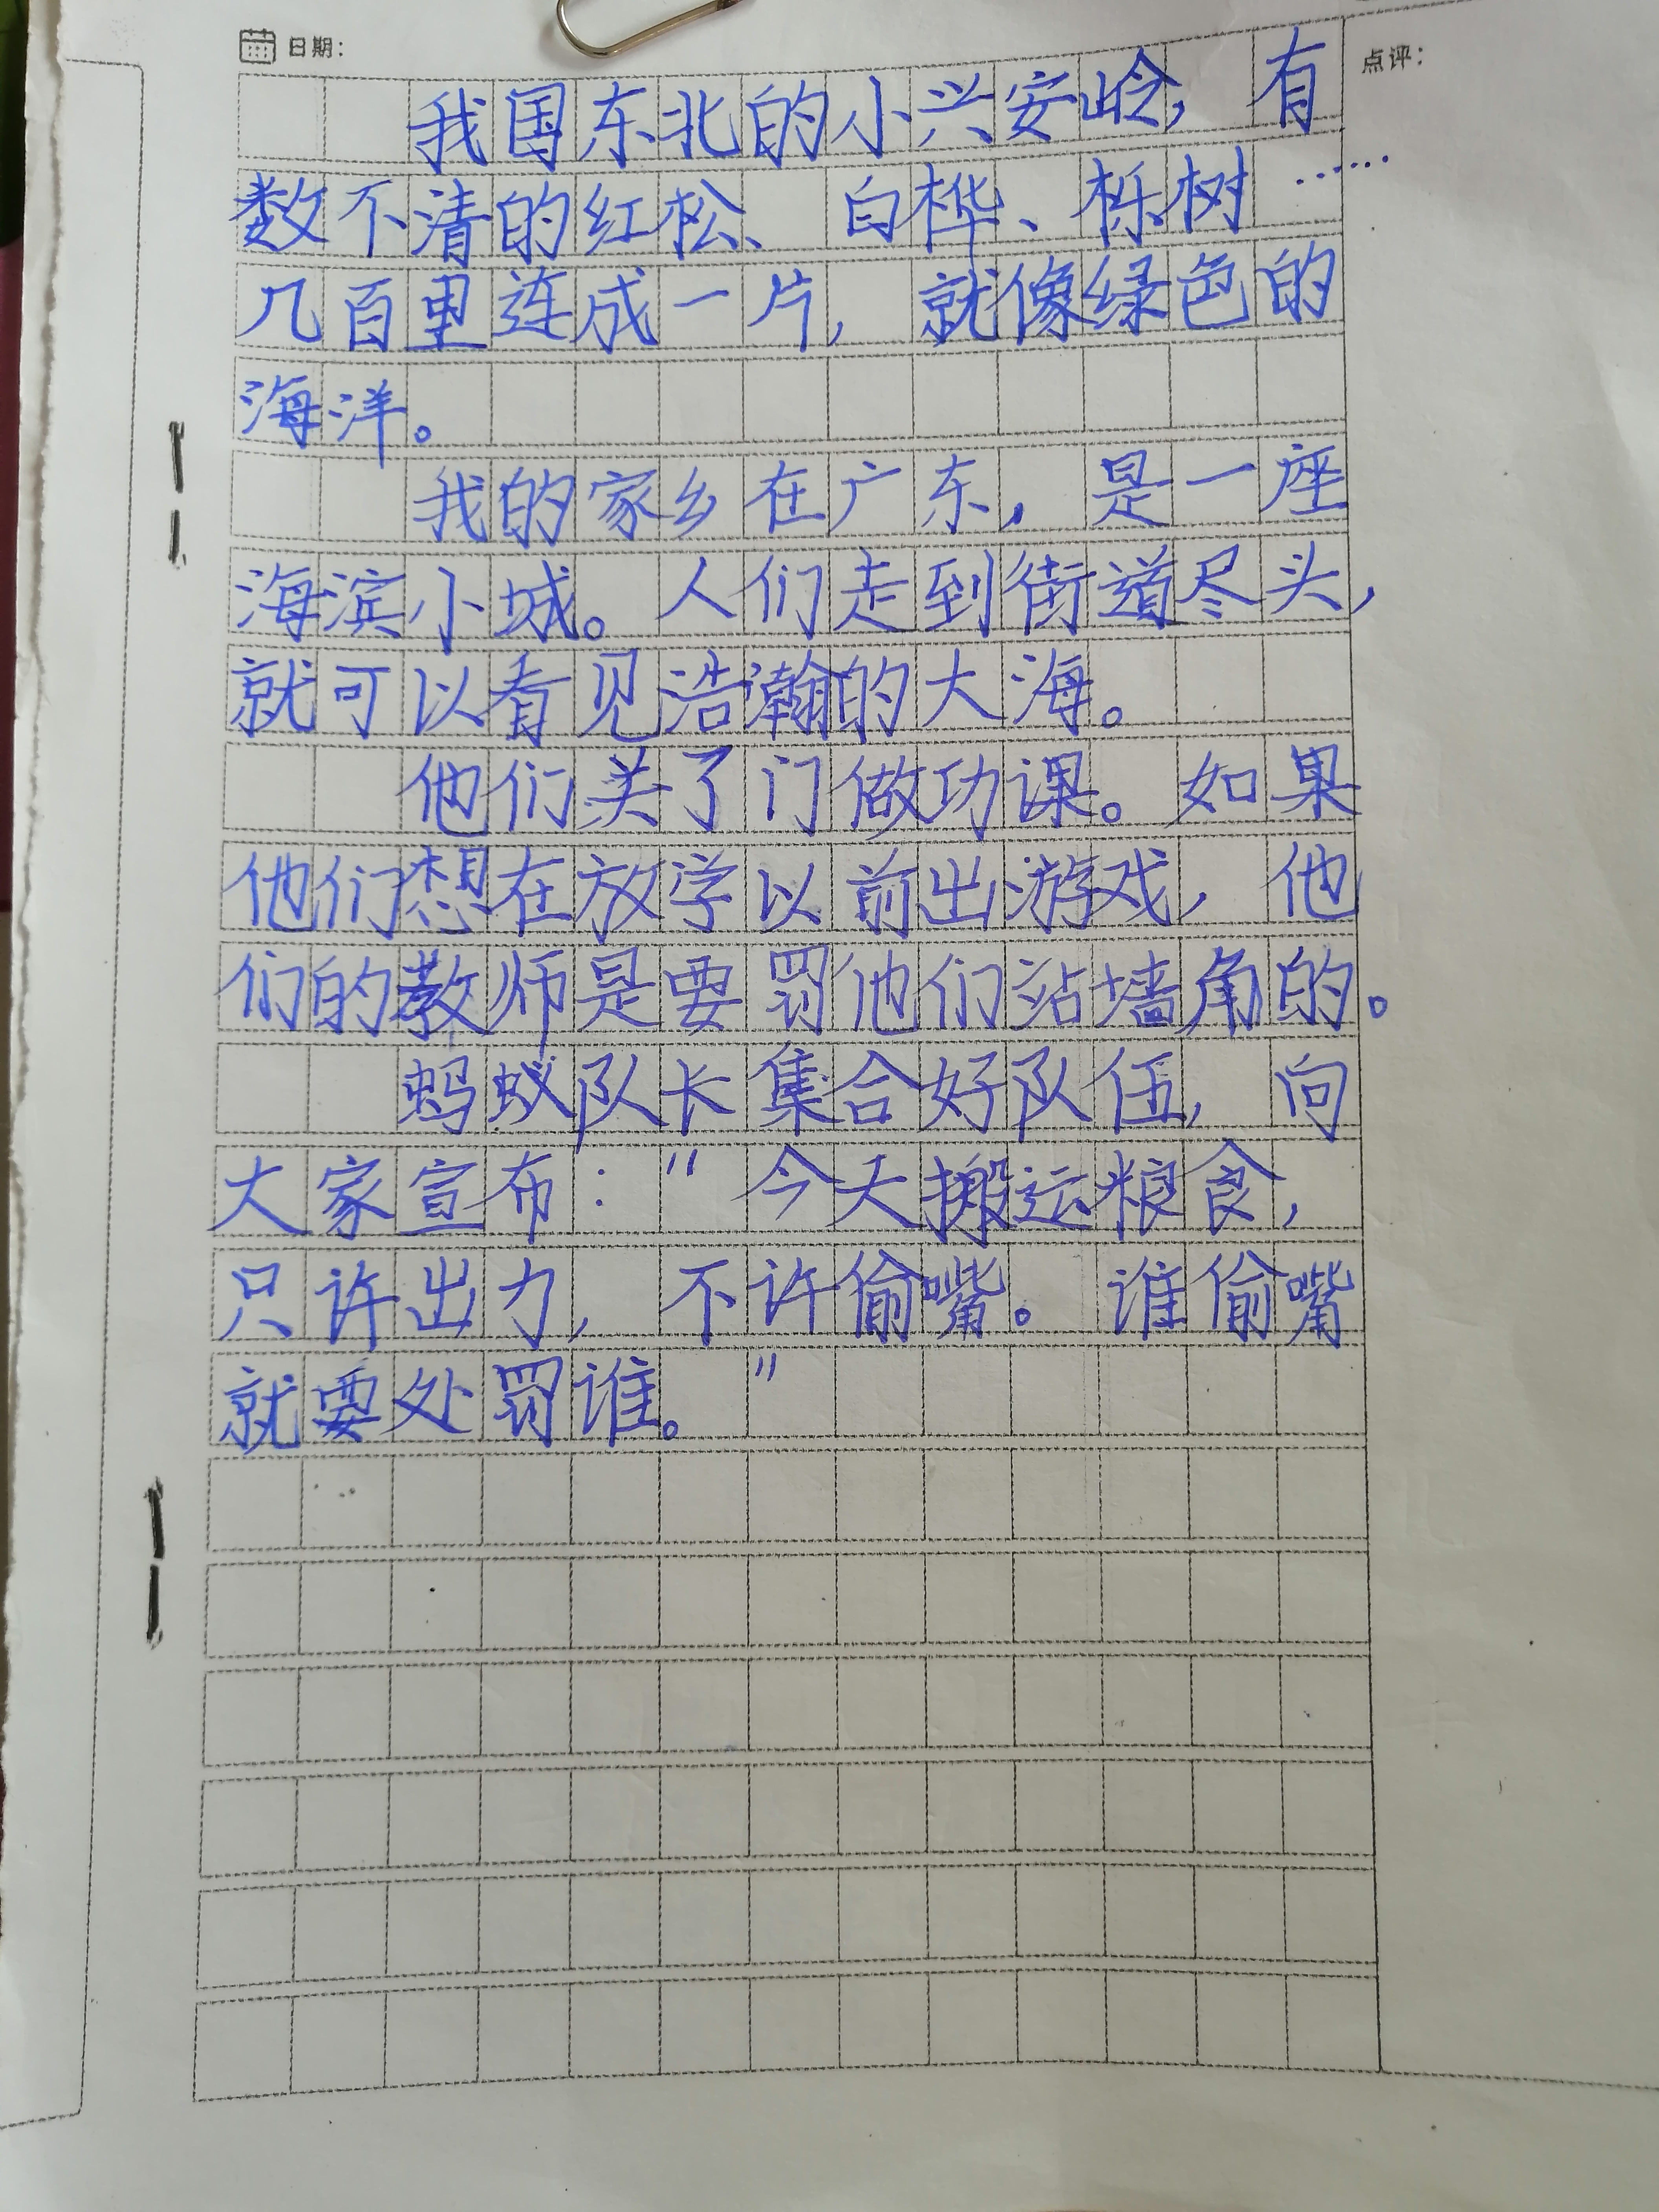 日期：
点评：
我国东北的小兴安岭，有
数不清的红松、白桦、栎树……
几百里连成一片，就像绿色的
海洋。
我的家乡在广东，是一座
海滨小城。人们走到街道尽头，
就可以看见浩瀚的大海。
他们关了门做功课。如果
他们想在放学以前出游戏，他
们的教师是要罚他们站墙角的。
蚂蚁队长集合好队伍，向
大家宣布："今天搬运粮食，
只许出力，不许偷嘴。谁偷嘴
就要处罚谁。"